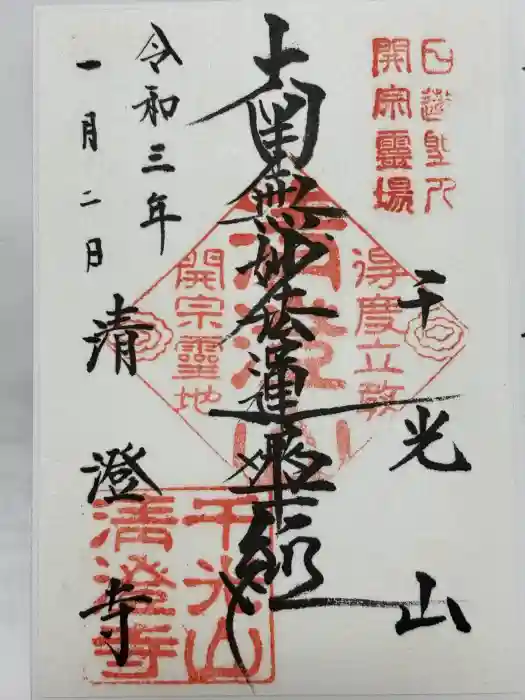 日蓮聖人
開宗靈場
千光山
得度立教
清澄山
南無妙法蓮華経
開宗靈地
令和三年
一月二日
清澄寺
千光山
清澄寺